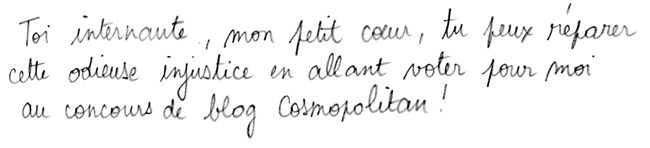 Toi internaute, mon petit cœur, tu peux réparer
cette odieuse injustice en allant voter pour moi
au concours de blog Cosmopolitan !